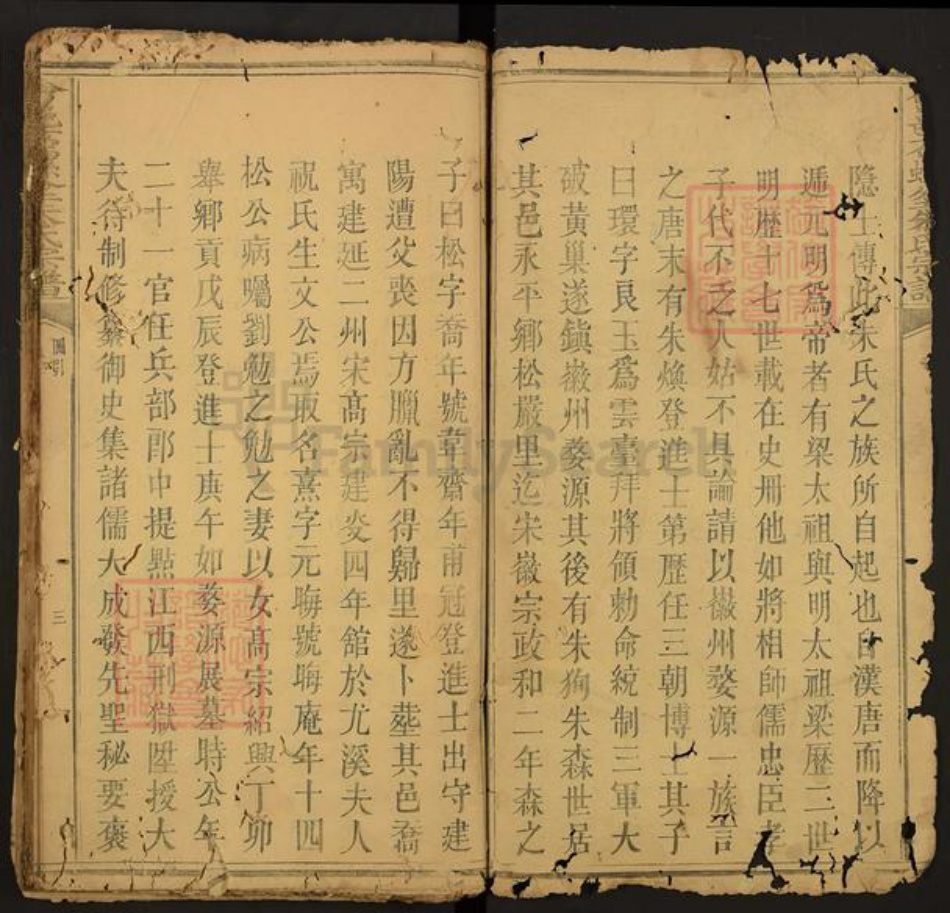 隱士傳此朱氏之族所自起也自漢唐而降以
遞元明爲帝者有梁太祖與明太祖梁歷二世
明歷十七世載在史册他如將相師儒忠臣孝
子代不乏人姑不具論請以徽州婺源一族言
之唐末有朱煥登進士第歷任三朝博士其子
曰環字良玉爲雲臺拜將領勅命統制三軍大
破黃巢遂鎮徽州婺源其後有朱狥朱森世居
其邑永平鄉松嚴里迄宋徽宗政和二年森之
子曰松字喬年號韋齋年甫冠登進士出守建
陽遭父喪因方臘亂不得歸里遂卜塟其邑喬
寓建延二州宋髙宗建炎四年舘於尤溪夫人
祝氏生文公焉取名熹字元晦號晦庵年十四
松公病囑劉勉之勉之妻以女髙宗紹興丁卯
舉鄉貢戊辰登進士庚午如婺源展墓時公年
二十一官任兵部郎中提點江西刑獄陞授大
夫待制修纂御史集諸儒大成發先聖秘要褒
圖引
三
FamilySearch